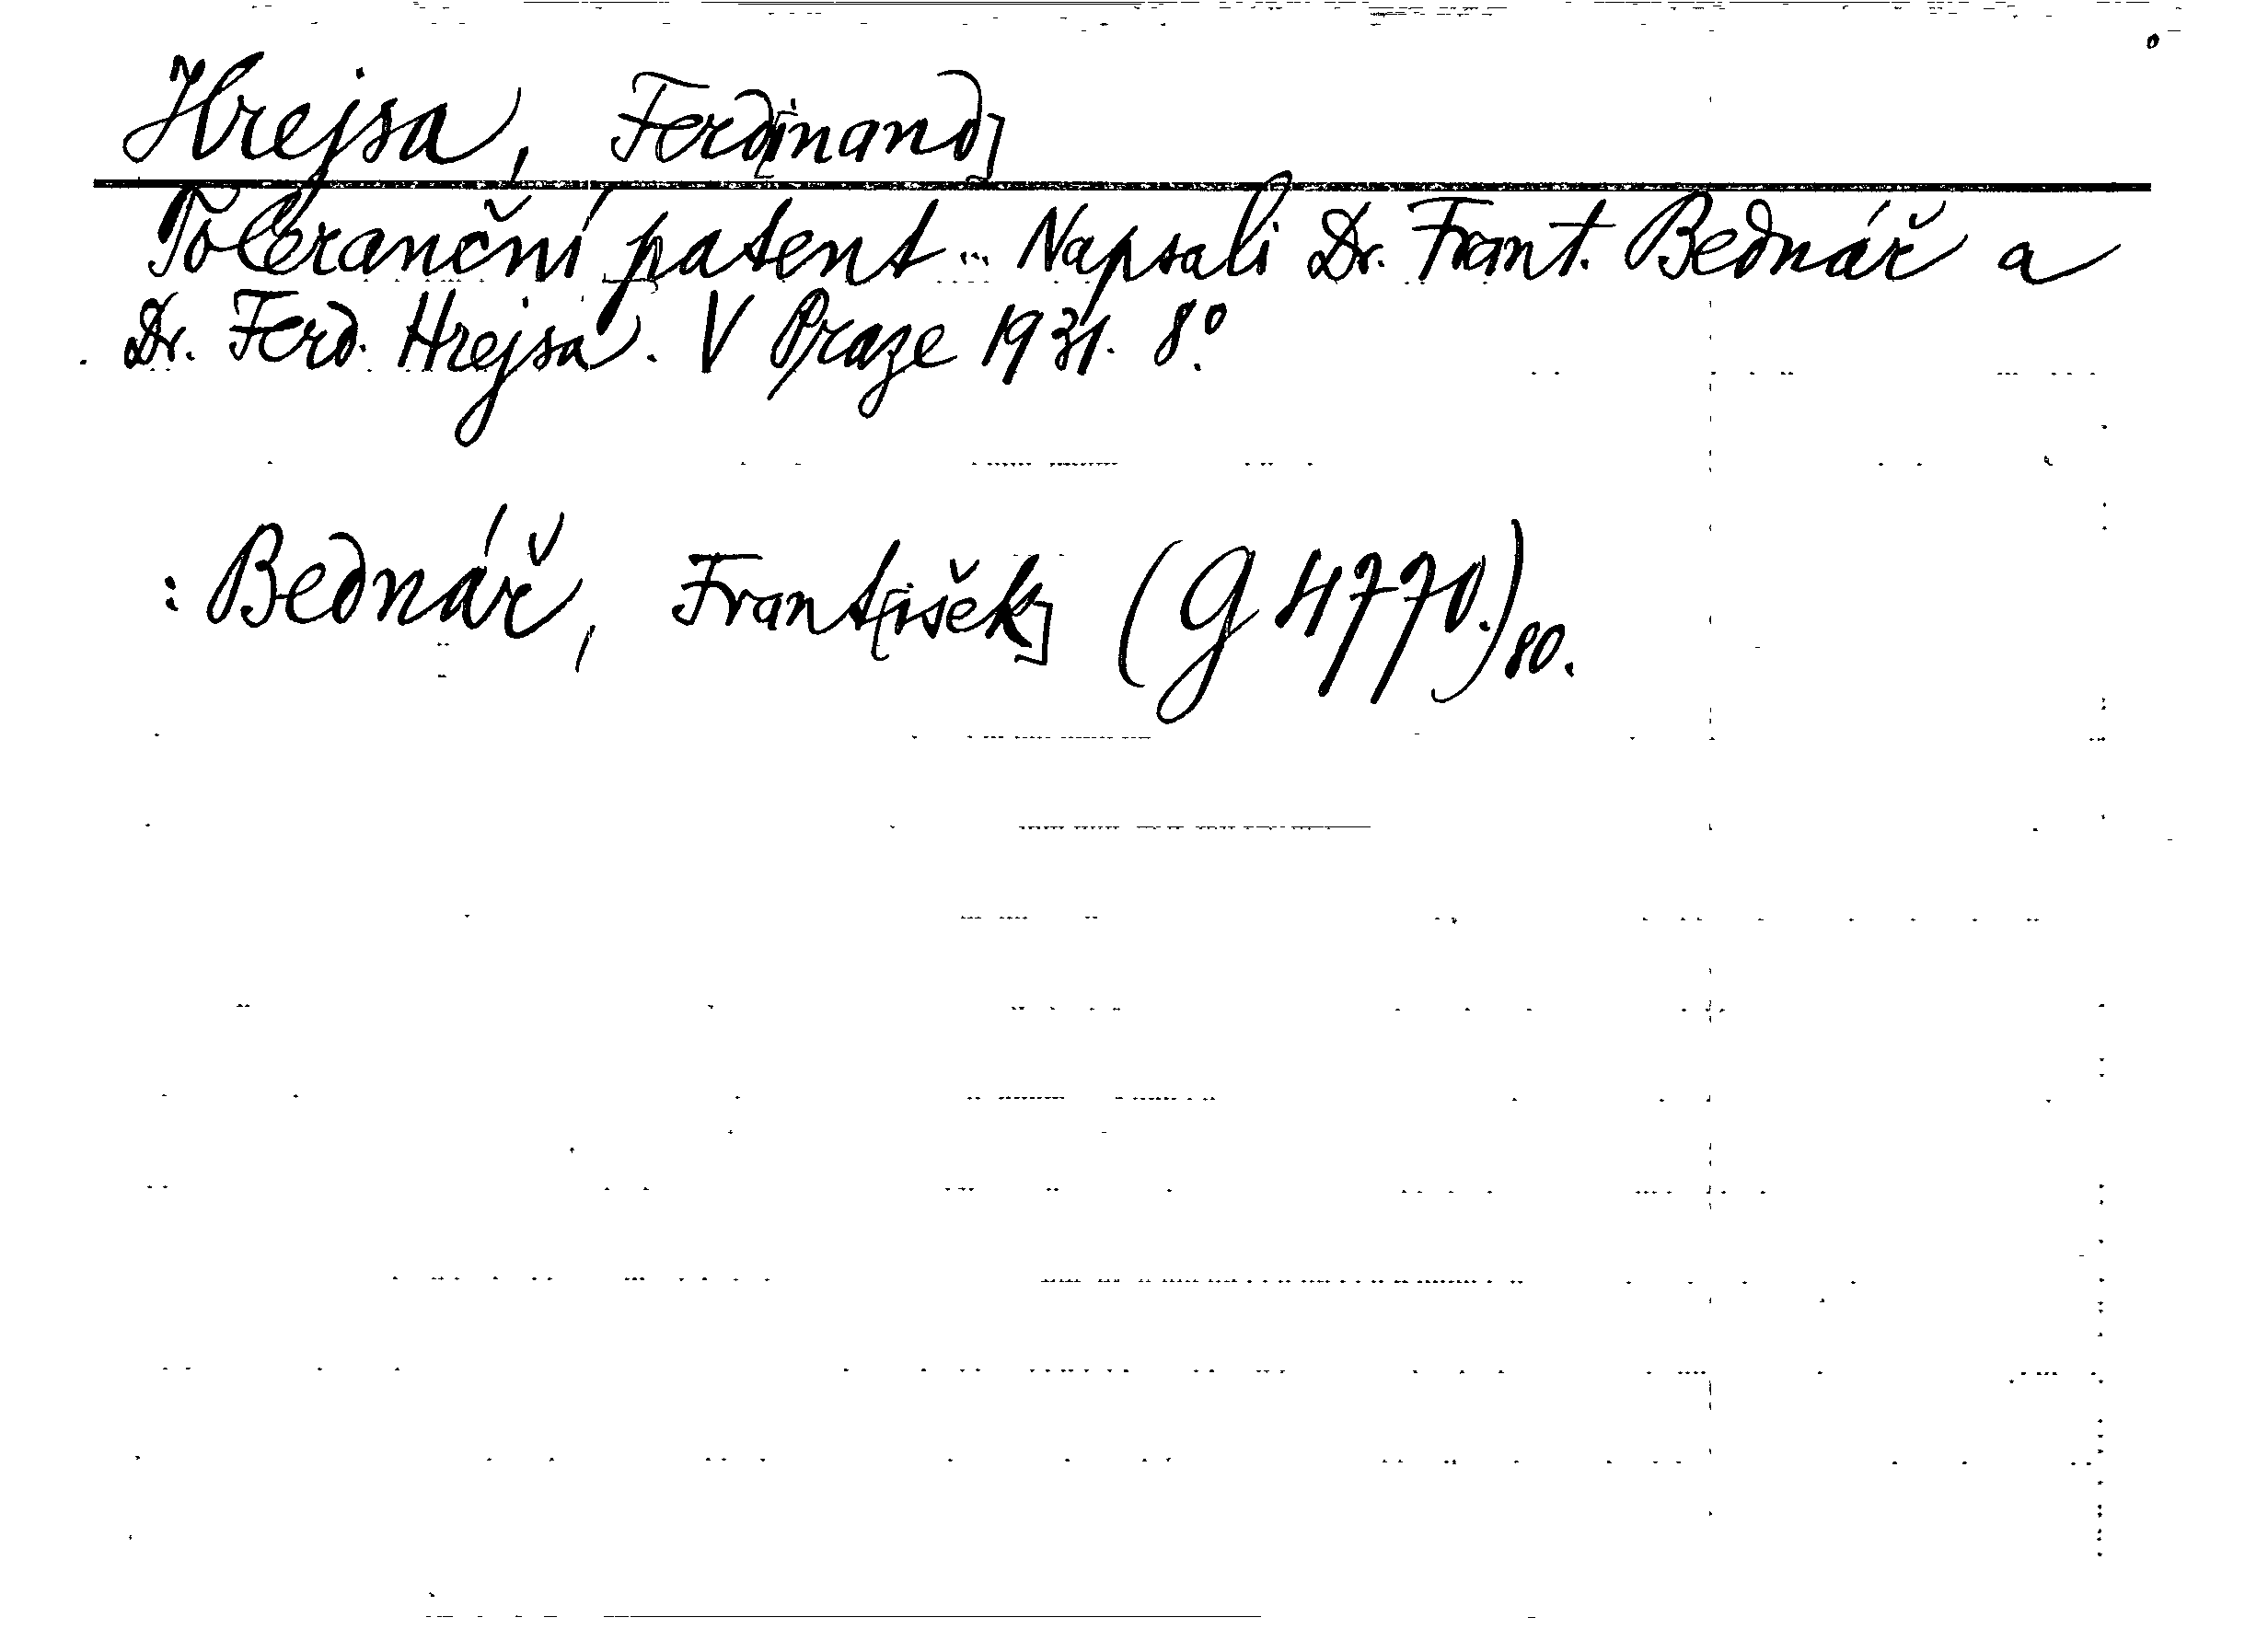 Hrejsa, Ferd[inand]
Toleranční patent ... Napsali Dr. Frant. Bednář a
Dr. Ferd. Hrejsa. V Praze 1931. 8°.
: Bednář, Frant[išek] (G 4770.) 80.